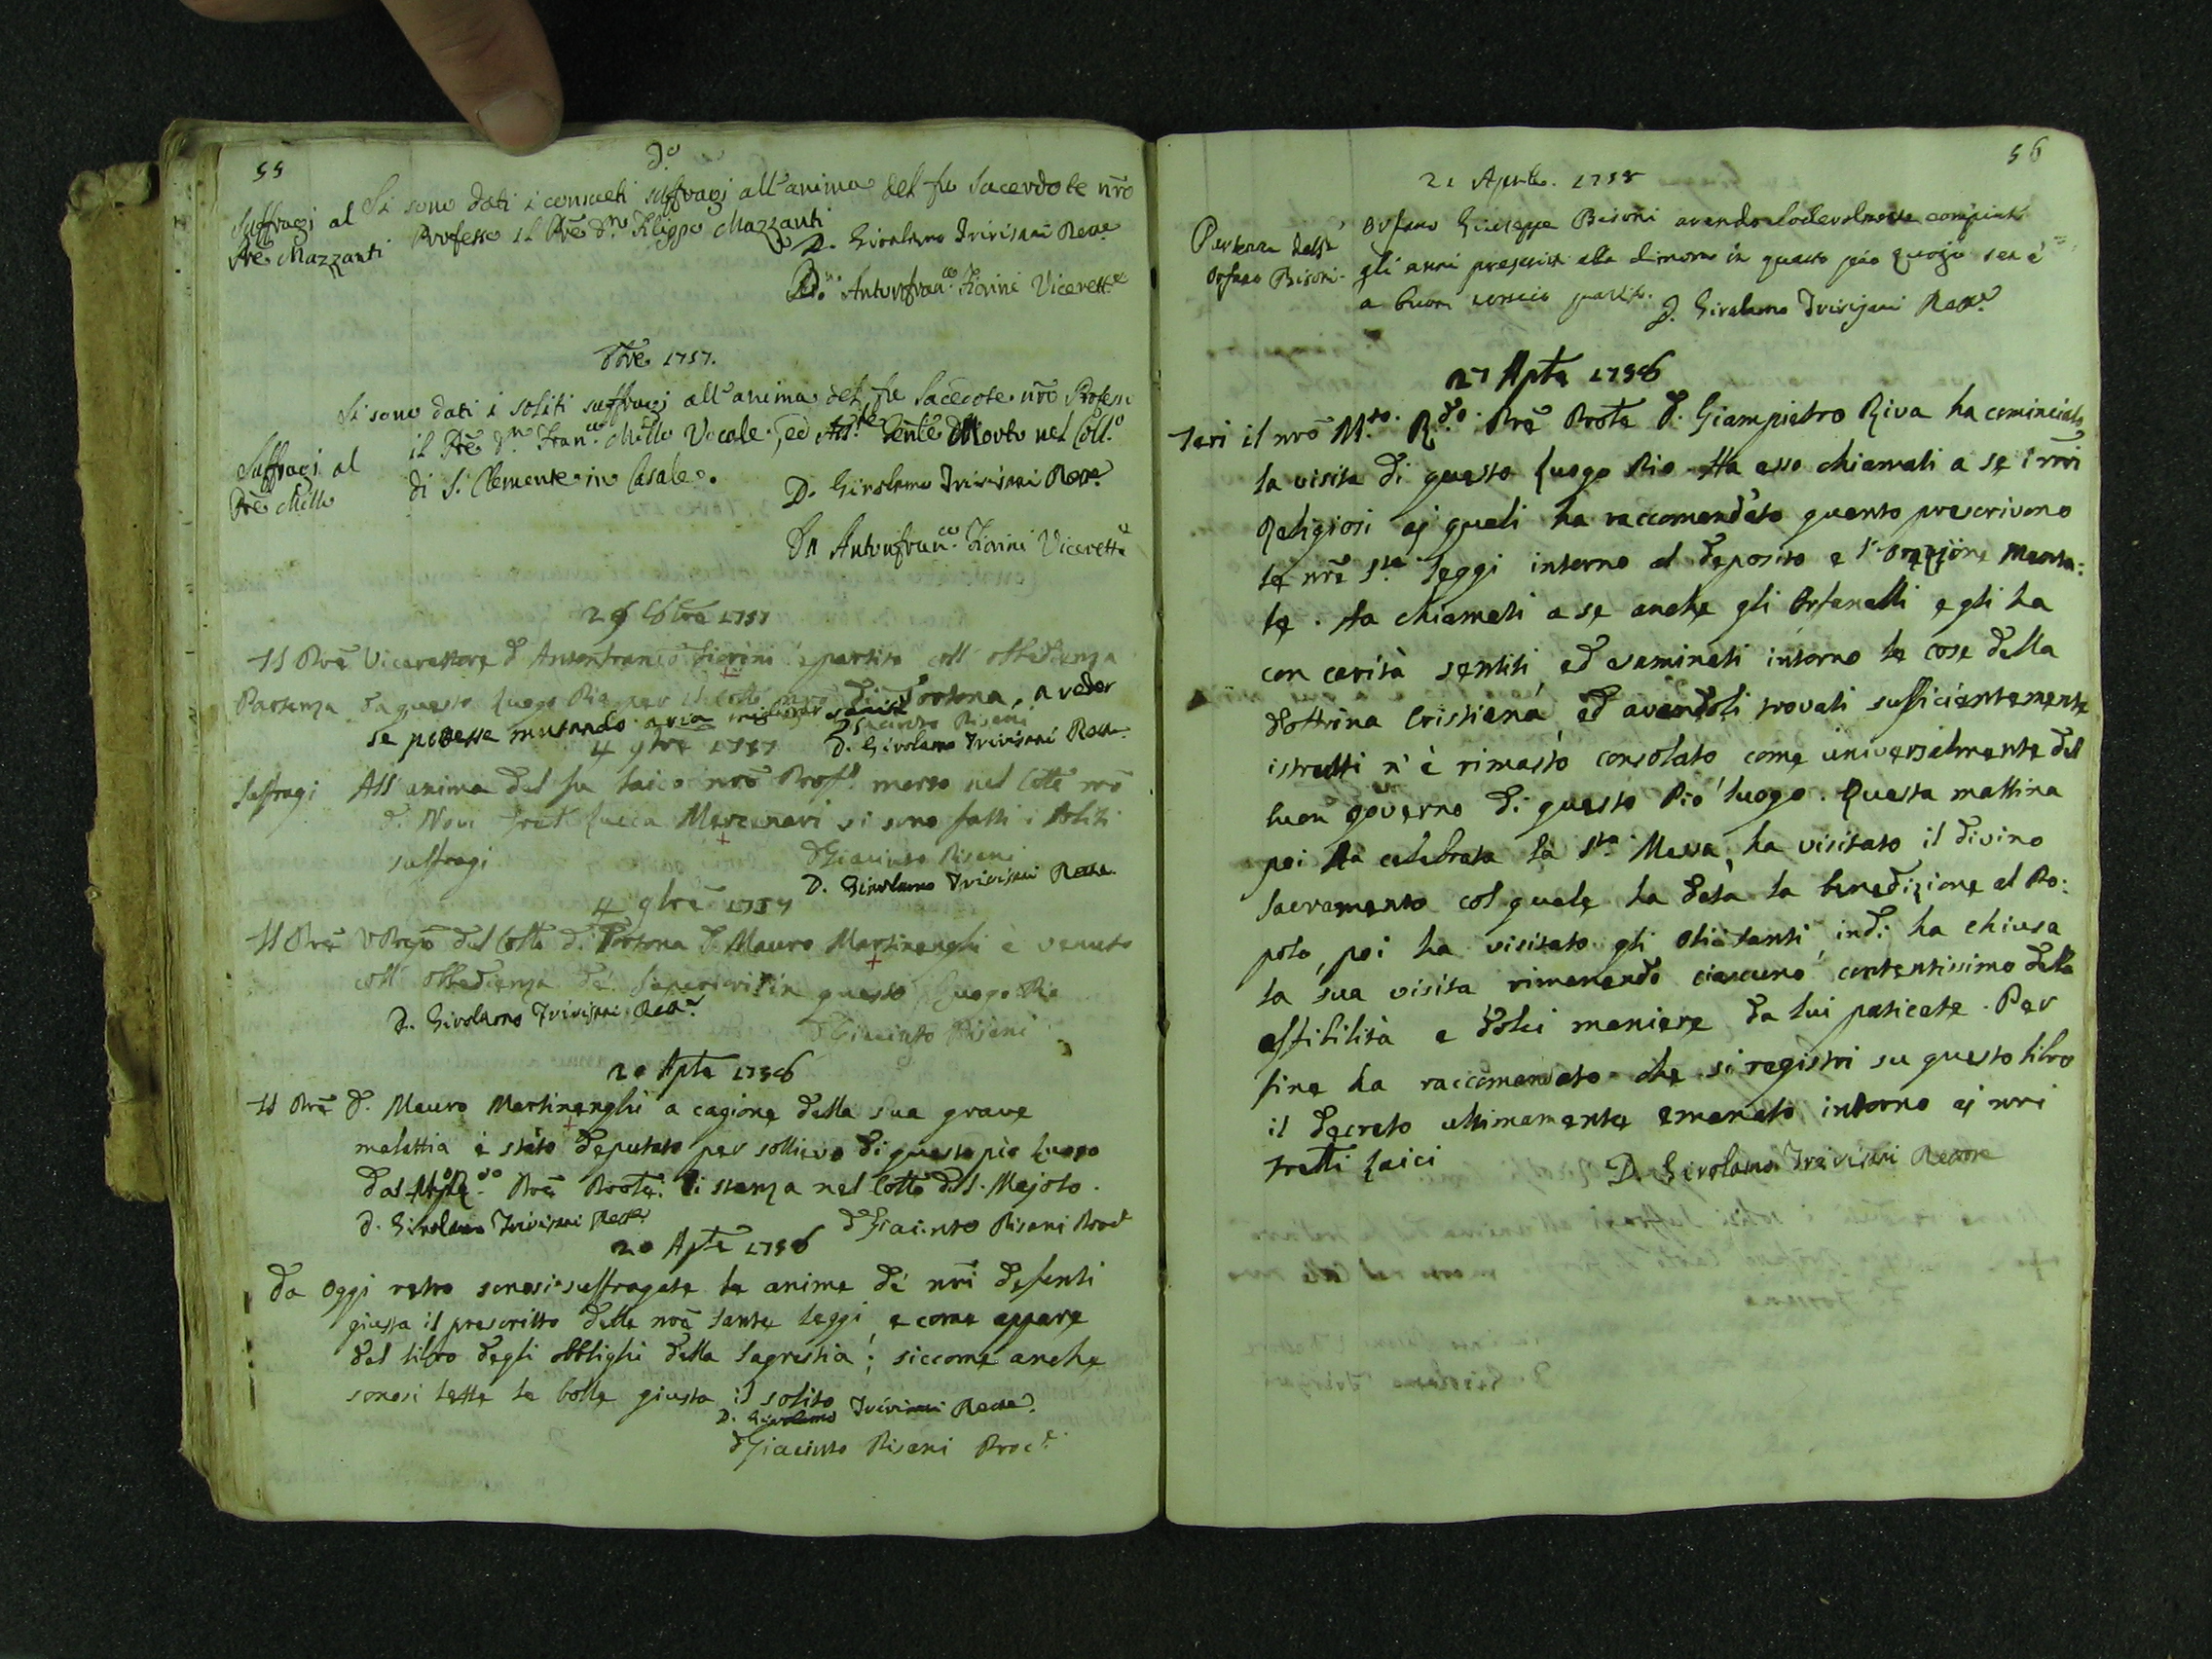 55
do
Suffragi al Pre Mazzanti
Si sono dati i consueti suffragi all'anima del fu Sacerdote nro
Professo il Pre Dn Filippo Mazzanti
D. Girolamo Trivisani Rettre
Dn Antonfranco Fiorini Vicerettre
8bre 1757.
Si sono dati i soliti suffragi all'anima del fu Sacedote nro Professo
Suffragi al Pre Mello
il Pre Dn Franco Mello Vocale, ed Assistente Gente Morto nel Collo
di S. Clemente in Casale.
D. Girolamo Trivisani Rettre
Dn Antonfranco Fiorini Vicerettre
8bre 1757
Il Pre Vicerettore D Antonfranco Fiorini è partito coll obbedienza
Partenza da questo Luogo Pio per il Collo nro di Tortona, a veder
se potesse mutando aria
D Giacinto Pisani
D. Girolamo Trivisani Rettre
4 9bre 1757
Suffragi All anima del fu laico nro Profo morto nel Collo nro
di Novi Fratt Lucca Mercenari si sono fatti i soliti
suffragi
D Giacinto Pisani
D. Girolamo Trivisani Rettre
4 9bre 1757
Il Pre VPrepo del Collo di Tortona D. Mauro Martinenghi è venuto
coll obbedienza de Superiori in questo Luogo Pio
D. Girolamo Trivisani Rettr
D Giacinto Pisani
20 Aple 1758
Il Pre D. Mauro Martinenghi a cagione della sua grave
malattia è stato deputato per sollievo di questo pio luogo
dal Mto Rdo Pre Prole di stanza nel Collo di S. Majolo.
D. Girolamo Trivisani Rettre
D Giacinto Pisani Procr
20 Aple 1758
Da oggi retro sonosi suffragate le anime de nri defonti
giusta il prescritto delle nre sante leggi, e come appare
dal libro degli obblighi della Sagrestia; siccome anche
sonosi lette le bolle giusta il solito
D. Girolamo Trivisani Rettre
D Giacinto Pisani Procre
56
21 Aprile. 1758
Partenza dell' orfano Bisoni
Orfano Giuseppe Bisoni avendo lodevolmente compiuti
gli anni prescritti alla dimora in questo pio Luogo sen è
a buon partito.
D. Girolamo Trivisani Rettre
27 Aple 1758
Ieri il nro Mto. Rdo. Pre Prole D. Giampietro Riva ha cominciato
la visita di questo Luogo Pio. Ha esso chiamati a se i nri
Religiosi ej quali ha raccomandato quanto prescrivono
le nre Ste leggi intorno al deposito e l'orazione menta:
le. Ha chiamati a se anche gli Orfanelli e gli ha
con carità sentiti, ed esaminati intorno le cose della
dottrina Cristiana ed avendoli trovati sufficientemente
istrutti n'è rimasto consolato come universalmente del
buon governo di questo Pio luogo. Questa mattina
poi ha celebrata la Sta Messa, ha visitato il divino
Sacramento col quale ha data la benedizione al Po:
polo, poi ha visitato gli Olii Santi indi ha chiusa
la sua visita rimanendo ciascuno contentissimo della
affibilità e dolci maniere da lui praticate. Per
fine ha raccomandato che si registri su questo libro
il decreto ultimamente emanato intorno ej nri
fratti laici
D. Girolamo Trivisani Rettore